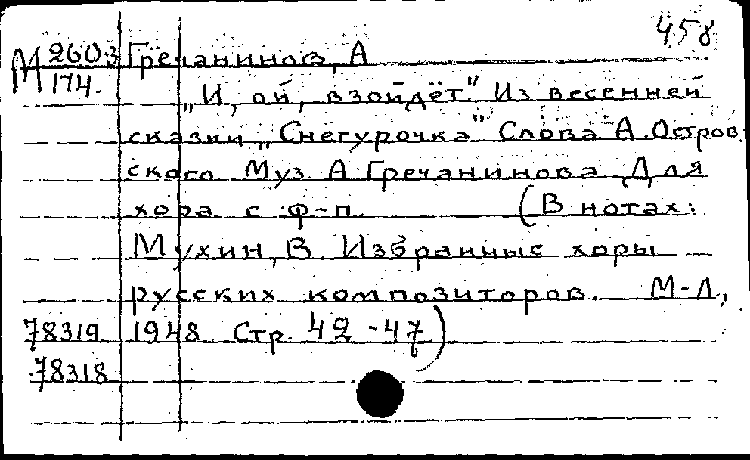 458
М 2603/174. Гречанинов, А
„И, ой, взойдёт." Из весенней
сказки „Снегурочка" Слова А. Островского
Муз. А. Гречанинова. Для
хора с ф-п. (В нотах:
Мухин, В. Избранные хоры
русских композиторов. М-Л,
78319 1948. Стр. 42-47)
78318